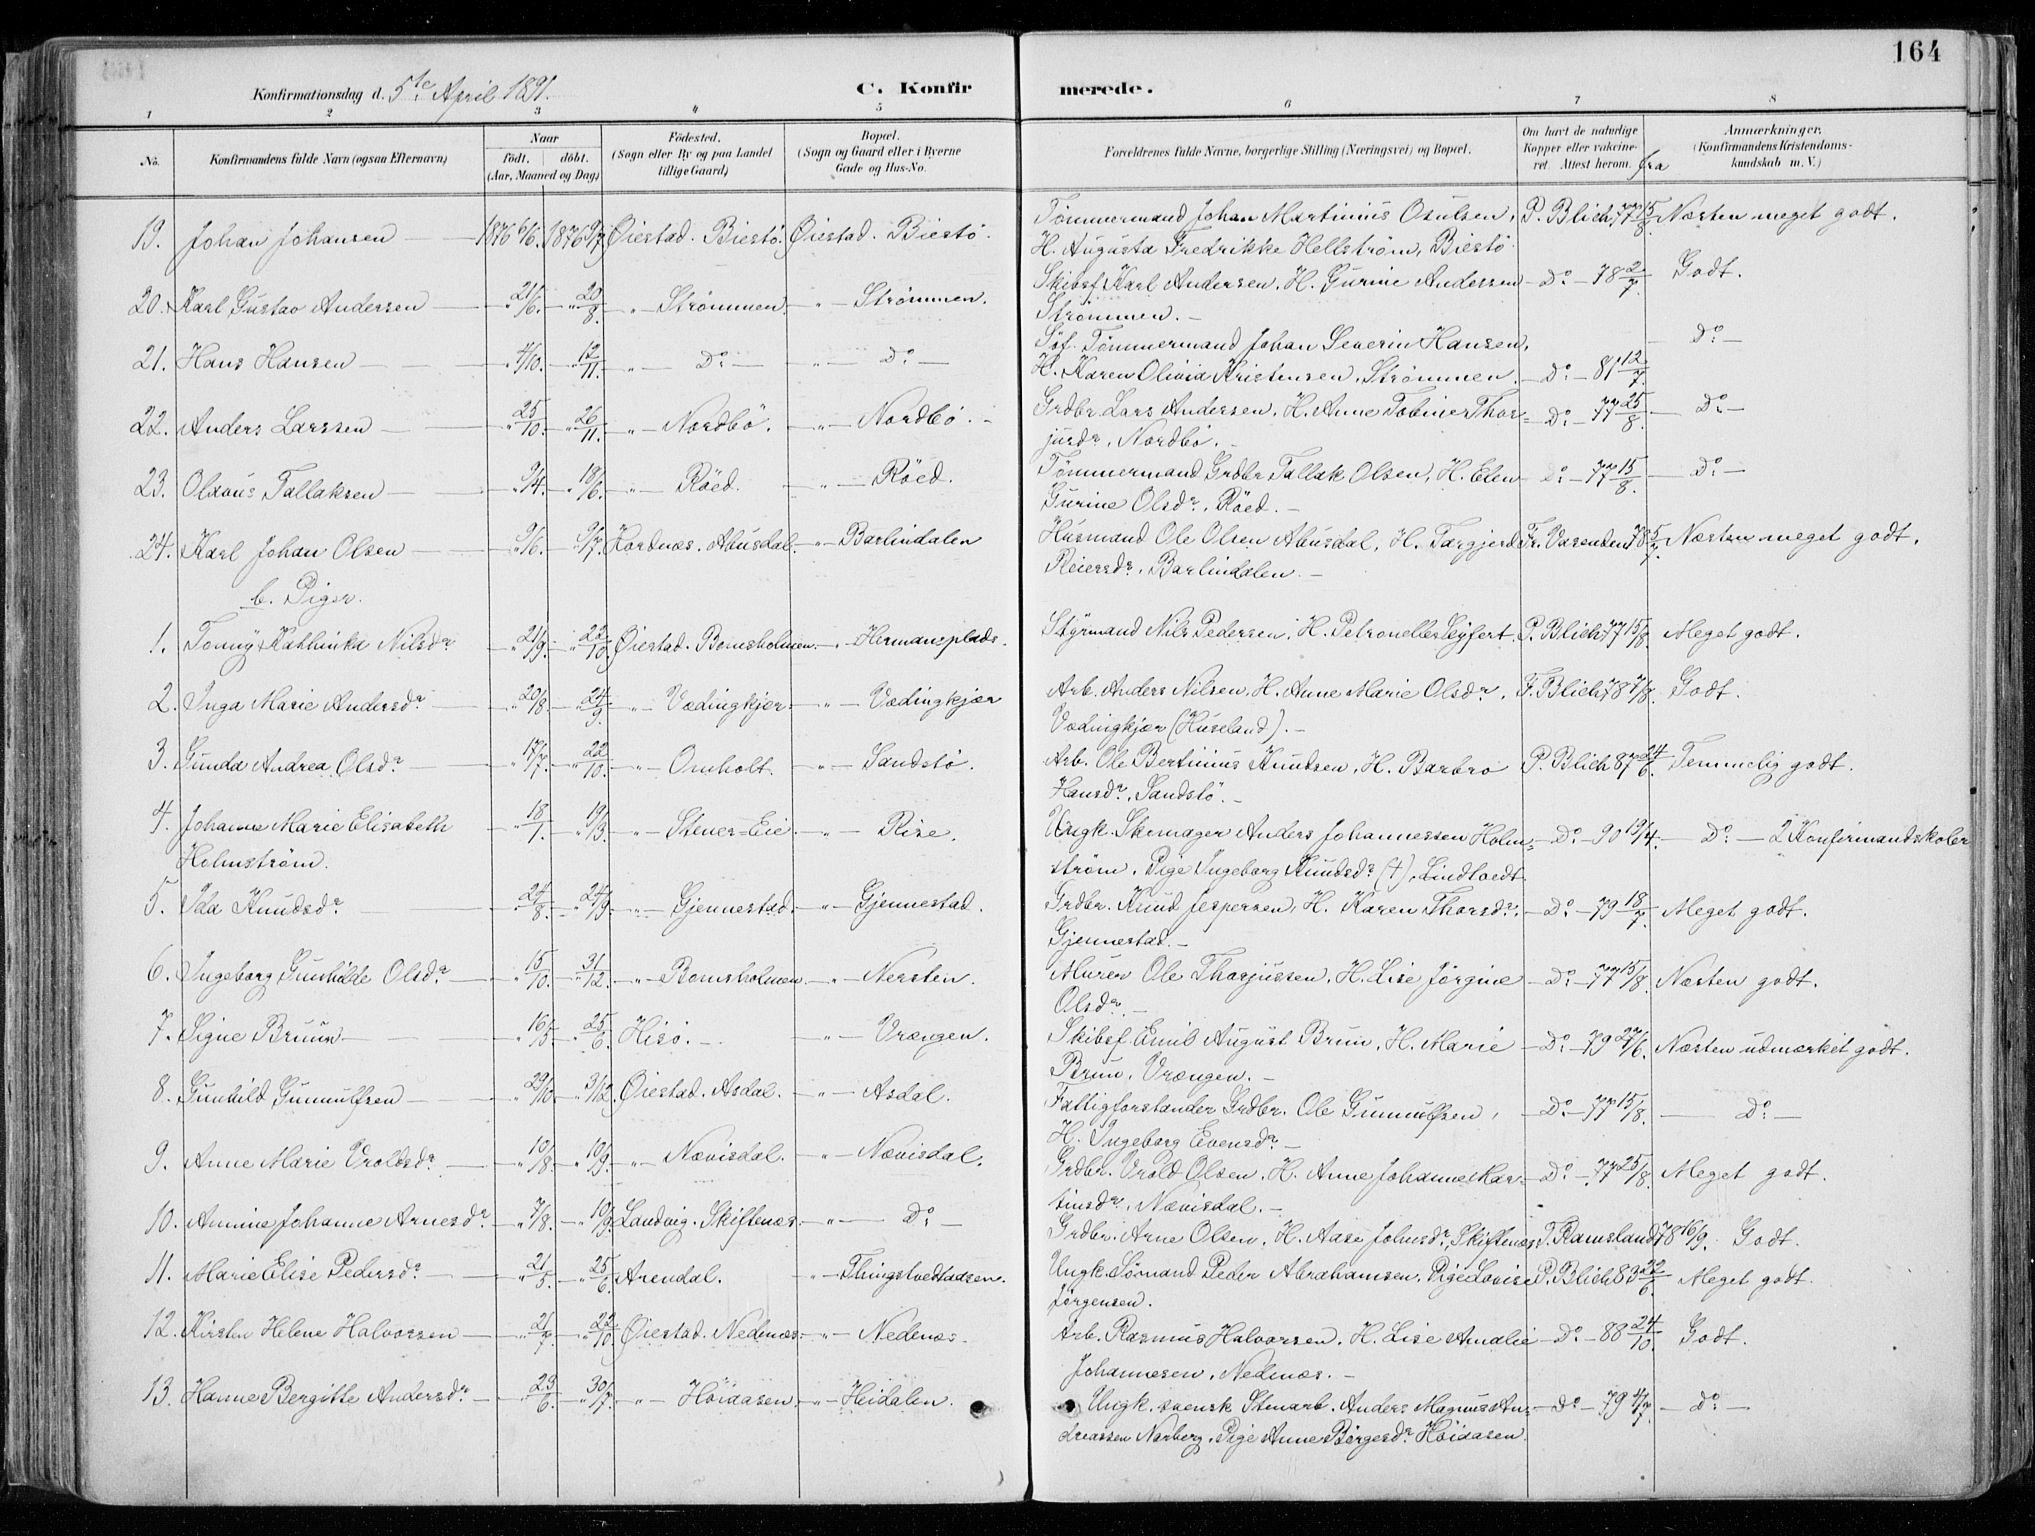 164
Konfirmationsdag d. 5te April 1891.
C. Konfirmerede.
1 2 3 4 5 6 7 8
No. Konfirmandens fulde Navn (ogsaa Efternavn) Naar født. døbt. (Aar, Maaned og Dag) Fødested. (Sogn eller By og paa Landet tillige Gaard) Bopæl. (Sogn og Gaard eller i Byerne Gade og Hus-No. Forældrenes fulde Navne, borgerlige Stilling (Næringsvei) og Bopæl. Om havt de naturlige Kopper eller vakcineret. Attest herom. fra Anmærkninger. (Konfirmandens Kristendomskundskab m. V.)
19. Johan Johansen 1876 6/6. 1876 9/7 Øiestad. Biestø. Øiestad. Biestø. Tømmermand Johan Martinius Osulsen, P. Blich 77 15/8. Næsten meget godt.
H. Augusta Fredrikke Hellstrøm, Biestø.
20. Karl Gustav Andersen " 21/6. " 20/8. " Strømmen. " Strømmen. Skibsf. Karl Andersen, H. Gurine Andersen Do 78 2/7. Godt.
Strømmen.
21. Hans Hansen " 4/10. " 12/11. " Do " Do Søf. Tømmermand Johan Severin Hansen, Do
H. Karen Olivia Kristensen, Strømmen. Do 81 12/7.
22. Anders Larssen " 25/10. " 26/11. " Nordbø. " Nordbø. Grdbr. Lars Andersen, H. Anne Tobine Thor= Do 77 25/8. Do
jusdr, Nordbø.
23. Olaus Tallaksen " 9/4. " 18/6. " Røed. " Røed. Tømmermand Grdbr Tallak Olsen, H. Elen Do 77 15/8. Do
Gurine Olsdr, Røed.
24. Karl Johan Olsen " 9/6. " 9/7. Hordnæs. Abusdal. " Barlindalen Husmand Ole Olsen Abusdal, H. Targjerd Fr. Vasenden 78 5/7. Næsten meget godt.
Reiersdr, Barlindalen.
b. Piger.
1. Tonny Kathinka Nilsdr " 21/9. " 22/10. Øiestad. Bomsholmen. " Hermansplads. Styrmand Nils Pedersen, H. Petronelle Seyfert. P. Blich 77 15/8. Meget godt.
2. Inga Marie Andersdr " 20/8. " 24/9. " Vædingkjær. " Vædingkjær Arb. Anders Nilsen, H. Anne Marie Olsdr, F. Blich 78 7/8. Godt.
Vædingkjær (Huseland).
3. Gunda Andrea Olsdr " 17/7. " 22/10. " Omholt. " Sandstø. Arb. Ole Bertinius Knudsen, H. Barbro P. Blich 87 24/6. Temmelig godt.
Hansdr, Sandstø.
4. Johanne Marie Elisabeth " 18/1. " 19/3. " Stener=Eie. " Rise. Ungk. Skomager Anders Johannessen Holm= Do 90 19/4. Do 2 Konfirmandskoler
Holmstrøm. strøm, Pige Ingeborg Knudsdr (†), Lindtvedt
5. Ida Knudsdr " 24/8. " 24/9. " Gjennestad. " Gjennestad. Grdbr. Knud Jespersen, H. Karen Thorsdr, Do 79 18/7. Meget godt.
Gjennestad.
6. Ingeborg Gunhilde Olsdr " 15/10. " 31/12. " Bomsholmen. " Nersten. Murer Ole Thorjussen, H. Lise Jørgine Do 77 15/8. Næsten godt.
Olsdr.
7. Signe Bruun " 16/5. " 25/6. Hisø. " Vrængen. Skibsf. Emil August Brun, H. Marie Do 79 27/6. Næsten udmærket godt.
Brun, Vrængen.
8. Gunhild Gunnulfsen " 29/10. " 3/12. Øiestad. Asdal. " Asdal. Fattigforstander Grdbr. Ole Gunnulfsen, Do 77 15/8. Do
H. Ingeborg Evensdr
9. Anne Marie Vroldsdr " 10/8. " 10/9. " Nævisdal. " Nævisdal. Grdbr. Vrold Olsen, H. Anne Johanne Mar= Do 77 25/8. Meget godt.
tinsdr, Nævisdal.
10. Annine Johanne Arnesdr " 7/8. " 10/9. Landvig. Skiftenæs. " Do Grdbr. Arne Olsen, H. Aase Johnsdr, Skiftenæs. T. Ramsland 78 16/9. Godt.
11. Marie Elise Pedersdr " 21/5. " 25/6. Arendal. " Thingstvedtaasen. Ungk. Sømand Peder Abrahamsen, Pige Lovise P. Blich 83 22/6. Meget godt.
Jørgensen.
12. Kirsten Helene Halvorsen " 21/7. " 22/10. Øiestad. Nedenæs. " Nedenæs. Arb. Rasmus Halvorsen, H. Lise Amalie Do 88 24/10. Godt.
Johannesen, Nedenæs.
13. Hanne Bergitte Andersdr " 23/6. " 30/7. " Høidaasen. " Heidalen. Ungk. svensk Stenarb. Anders Magnus An= Do 79 4/7. Do
dreassen Norberg, Pige Anne Børgesdr Høidaasen.